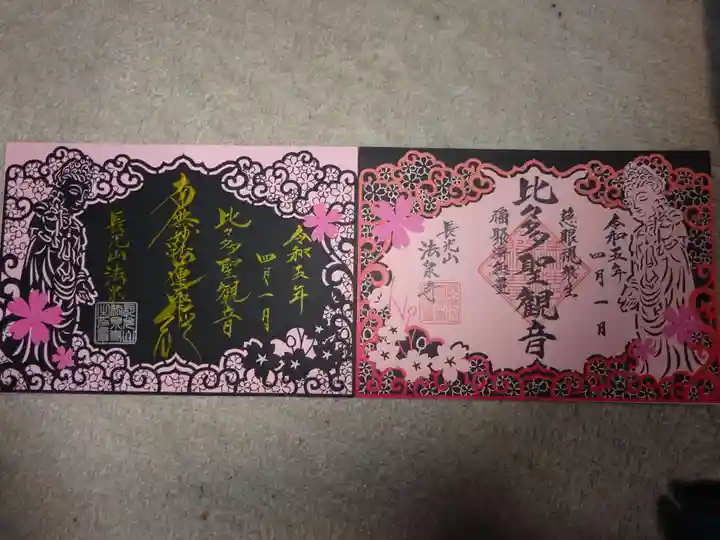 令和五年
四月一月
比々多聖観音
南無妙法蓮華経
長光山法泉
令和五年
四月一月
慈眼視衆生
比々多聖観音
福聚海無量
長光山
法泉寺